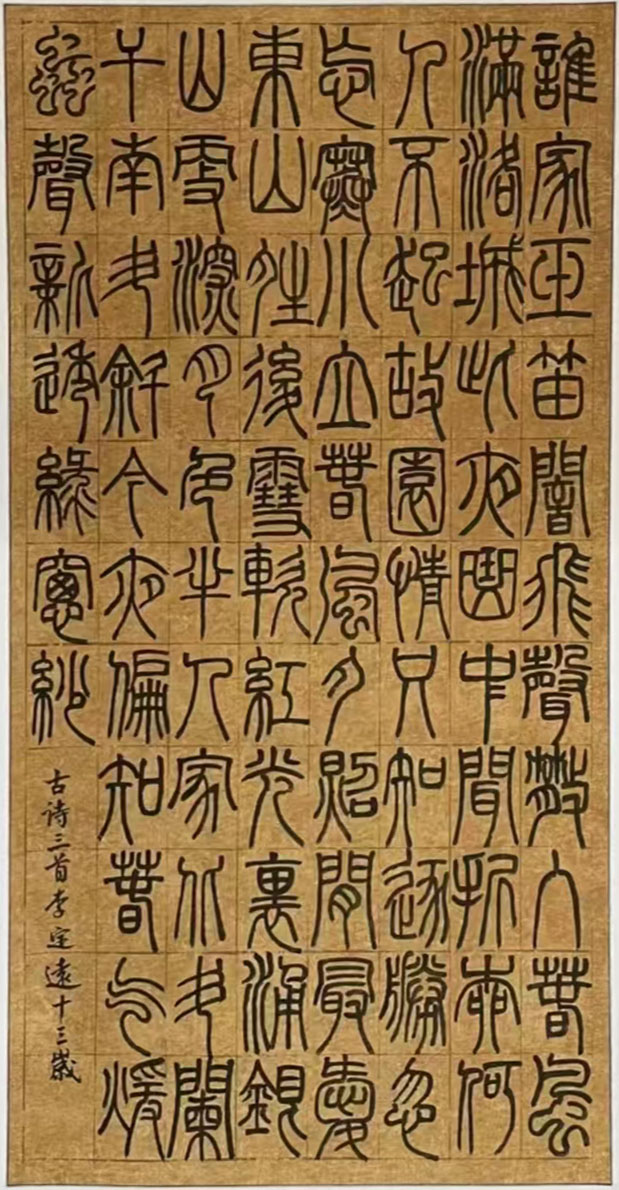 誰家玉笛闇飛聲散入春風
滿洛城此夜曲中聞折柳何
人不起故園情只知逐勝忽
忘寒小立春風夕照間最愛
東山晴後雪軟紅光裏涌銀
山更深月色半人家北斗闌
干南斗斜今夜偏知春气暖
蟲聲新透綠窗紗
古诗三首李定遠十三歲